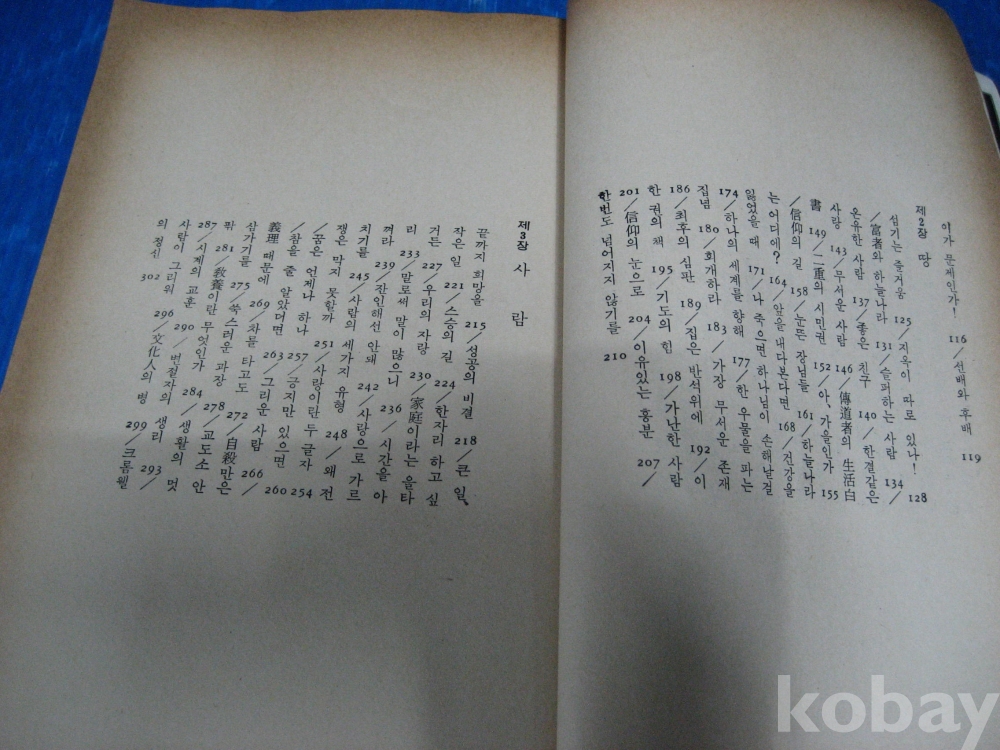 이가 문제인가! 116/선배와 후배 119
제2장 땅
섬기는 즐거움 125/지옥이 따로 있나! 128
/富者와 하늘나라 131/슬퍼하는 사람 134/
온유한 사람 137/좋은 친구 140/한결같은
사랑 143/무서운 사람 146/傳道者의 生活白
書 149/二重의 시민권 152/아, 가을인가 155
/信仰의 길 158/눈뜬 장님들 161/하늘나라
는 어디에? 164/앞을 내다본다면 168/건강을
잃었을 때 171/나 죽으면 하나님이 손해날걸
174/하나의 세계를 향해 177/한 우물을 파는
집념 180/회개하라 183/가장 무서운 존재
186/최후의 심판 189/집은 반석위에 192/이
한 권의 책 195/기도의 힘 198/가난한 사람
201/信仰의 눈으로 204/이유있는 흥분 207/
한번도 넘어지지 않기를 210
제3장 사람
끝까지 희망을 215/성공의 비결 218/큰 일,
작은 일 221/스승의 길 224/한자리 하고 싶
거든 227/우리의 자랑 230/家庭이라는 울타
리 233/말로써 말이 많으니 236/시간을 아
껴라 239/잔인해선 안돼 242/사랑으로 가르
치기를 245/사람의 세가지 유형 248/왜 전
쟁은 막지 못할까 251/사랑이란 두 글자 254
/꿈은 언제나 하나 257/긍지만 있으면 260
/참을 줄 알았더면 263/그리운 사람 266/
義理 때문에 269/차를 타고도 272/自殺만은
삼가기를 275/쑥스러운 과장 278/교도소 안
팎 281/敎養이란 무엇인가 284/생활의 멋
287/시계의 교훈 290/변절자의 생리 293/
사람이 그리워 296/文化人의 병 299/크롬웰
의 정신 302
kobay